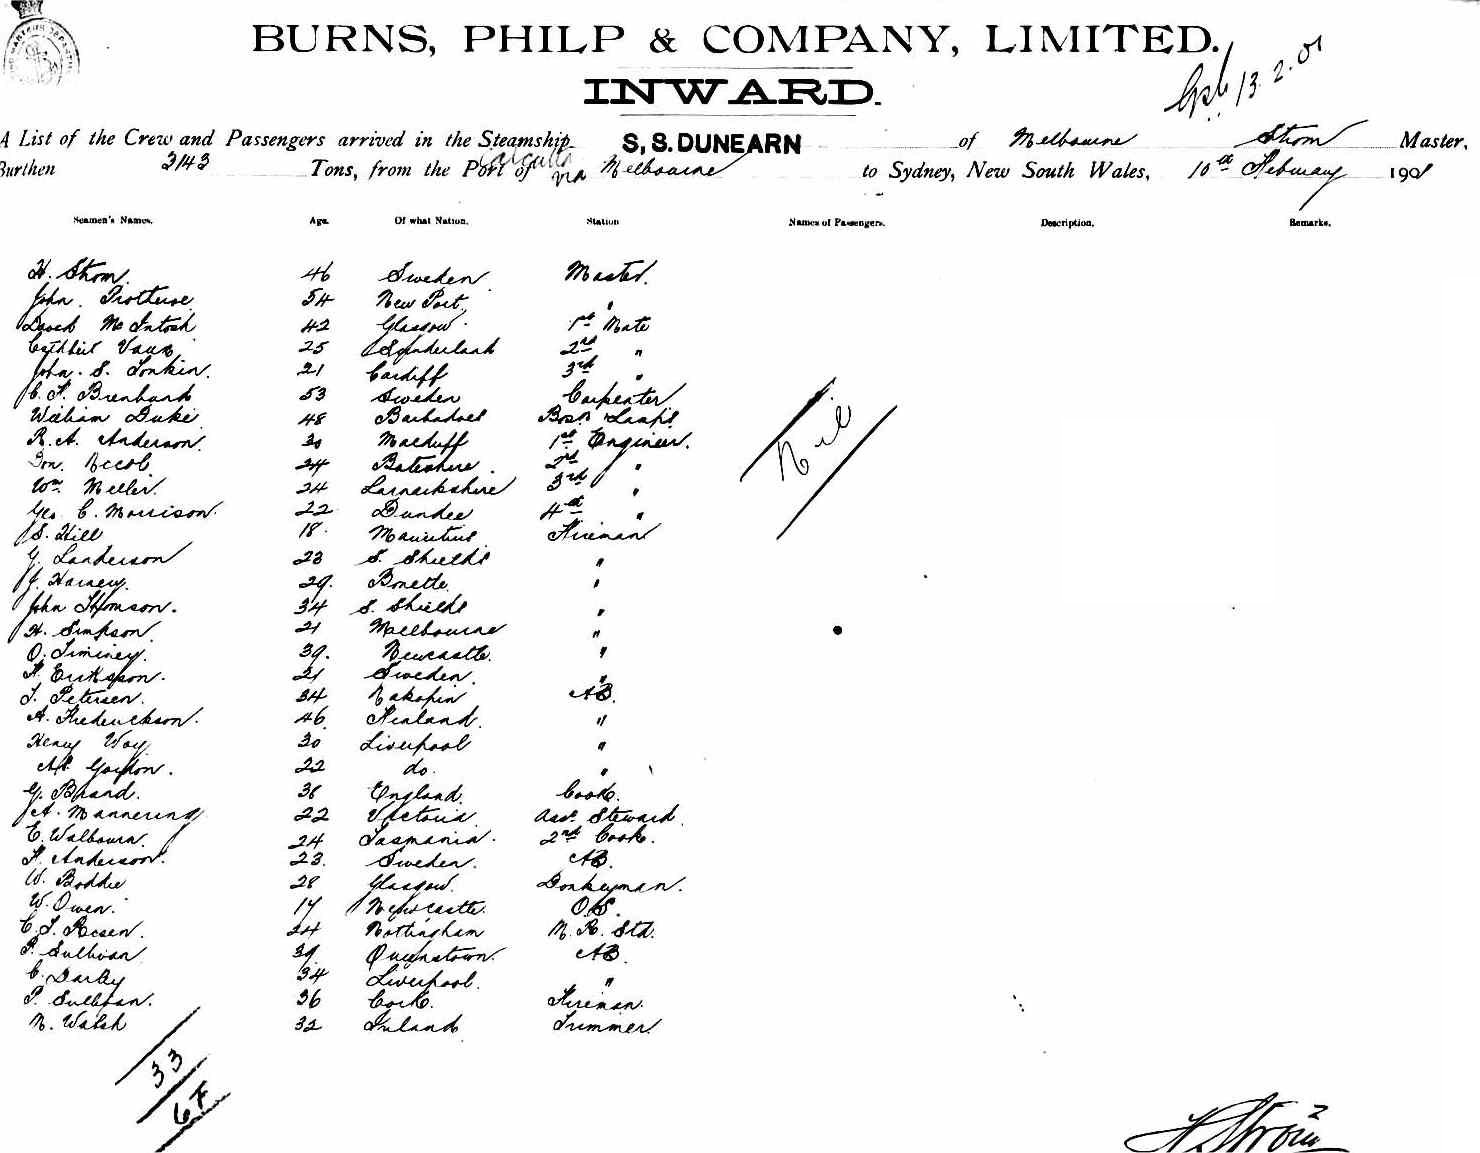 BURNS, PHILP & COMPANY, LIMITED.
INWARD.
13.2.01
A List of the Crew and Passengers arrived in the Steamship S.S. DUNEARN of Melbourne Strom Master,
Burthen 3143 Tons, from the Port of Calcutta via Melbourne to Sydney, New South Wales, 10th February 1901
Seamen's Names. Age. Of what Nation. Station Names of Passengers. Description. Remarks.
H. Strom. 46 Sweden Master.
John. 54 New Port "
David McIntosh 42 Glasgow. 1st Mate
Cuthbert Vaux 25 Sunderland 2nd "
John. S. Tonkin. 21 Cardiff 3rd "
C. F. 53 Sweden Carpenter
William Duke 48 Barbadoes Bosn Lamps
R. A. Anderson. 30 Macduff 1st Engineer.
24 2nd "
Wm. 24 Lanarkshire 3rd "
Geo. C. Morrison. 22 Dundee 4th "
S. Hill 18. Mauritius Fireman
23 S. Shields "
J. Harvey. 29. "
John Thomson. 34 S. Shields "
H. Simpson. 21 Melbourne "
O. 39. Newcastle. "
F. Eriksson. 21 Sweden. "
Petersen. 34 AB.
A. Frederickson. 46 Finland. "
Henry Way 30 Liverpool "
22 do. "
G. Brand. 36 England. Cook.
A. Mannering 22 Victoria. Asst. Steward.
E. Walbourn. 24 Tasmania. 2nd Cook.
F. Anderson. 23. Sweden. AB.
W. Boddie 28 Glasgow. Donkeyman.
W. Owen. 17 Newcastle. O.S.
24 Nottingham M. R. Std.
P. Sullivan 39. Queenstown. AB.
C. Darby 34 Liverpool. "
P. Sullivan. 36 Cork. Fireman.
M. Walsh 32 Ireland Trimmer
Nil
33
H. Ström